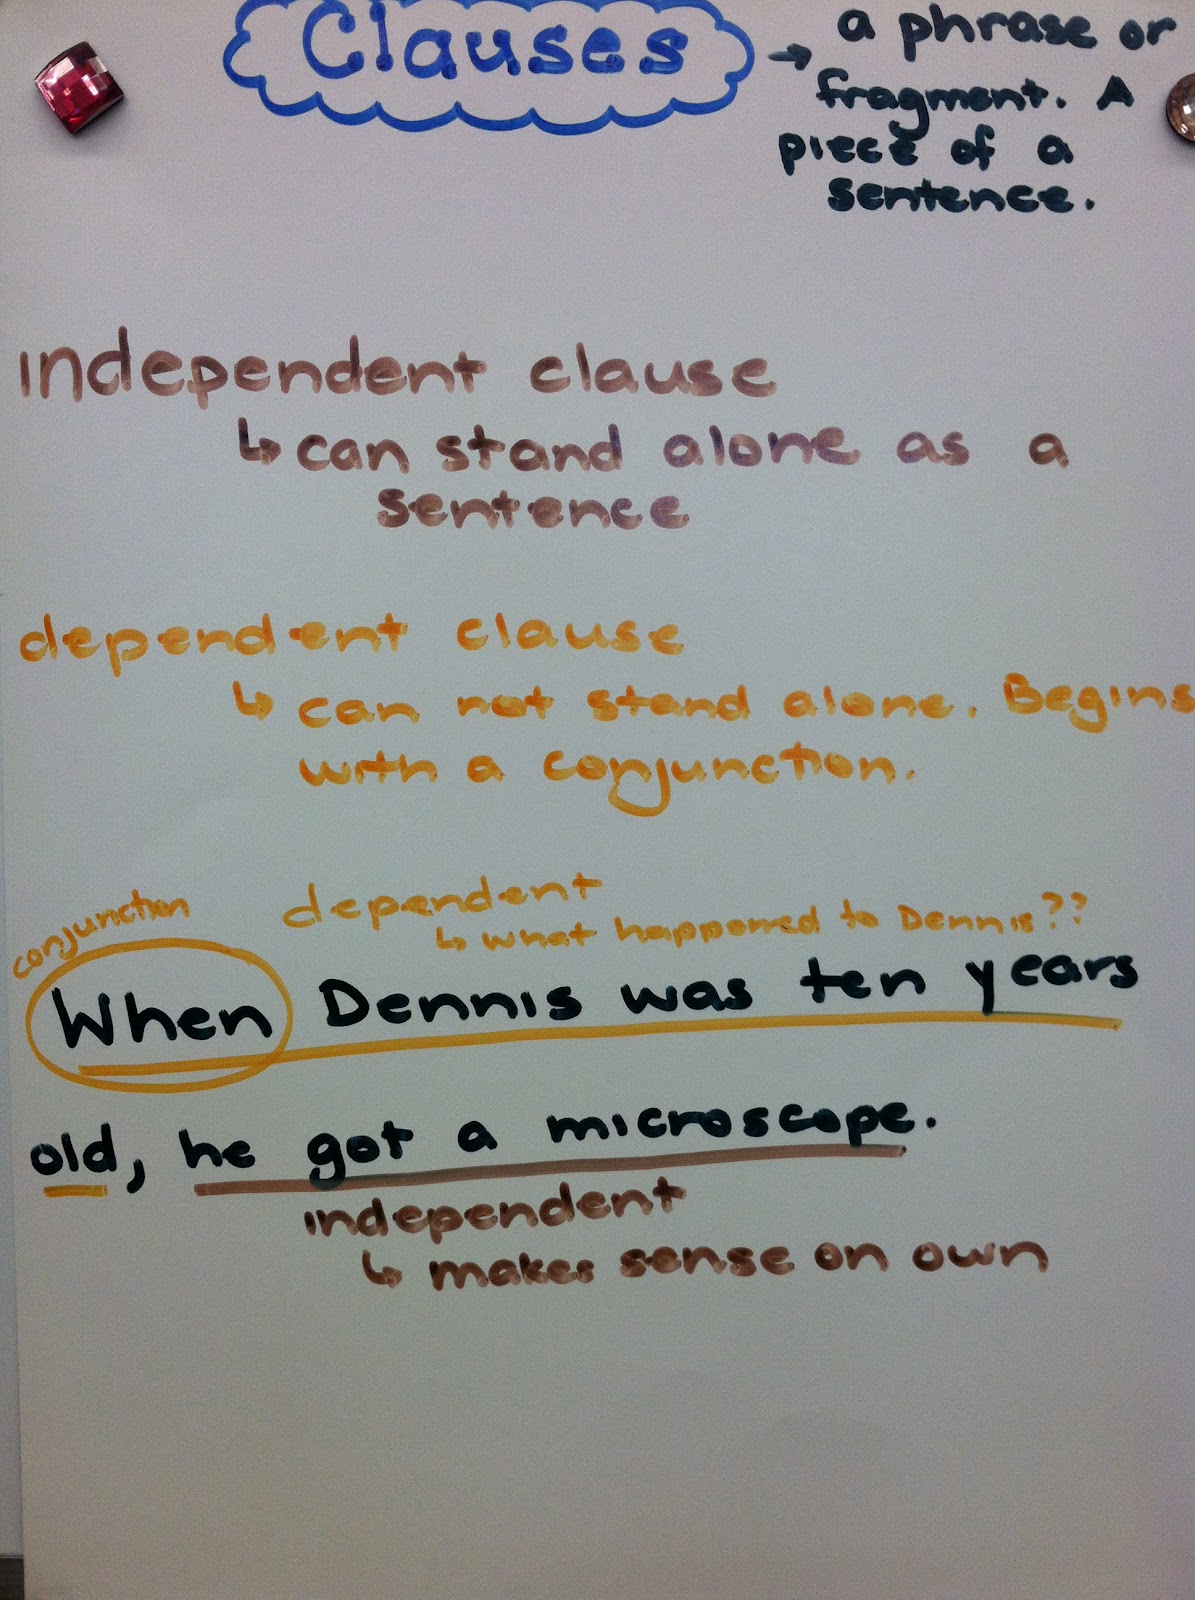 Clauses → a phrase or
fragment. A
piece of a
sentence.
independent clause
↳ can stand alone as a
sentence
dependent clause
↳ can not stand alone. Begins
with a conjunction.
conjunction
dependent
↳ what happened to Dennis??
When Dennis was ten years
old, he got a microscope.
independent
↳ makes sense on own